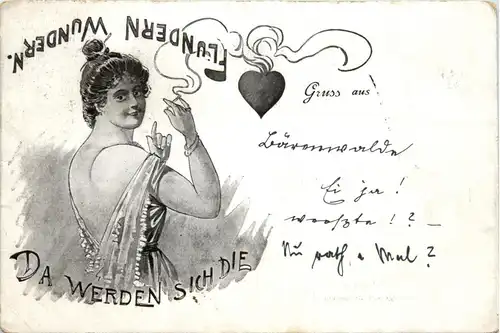 DA WERDEN SICH DIE
FLUNDERN WUNDERN.
Gruss aus
Bärenwalde
Ei ja!
weeßte!? –
Nu rath, e Mal?